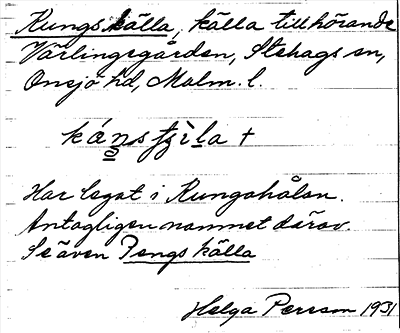 Kungs källa, källa tillhörande
Värlingegården, Stehags sn,
Onsjö hd, Malm. l.
Har legat i Kungahålan.
Antagligen namnet därav.
Se även Pengs källa
Helga Persson 1931